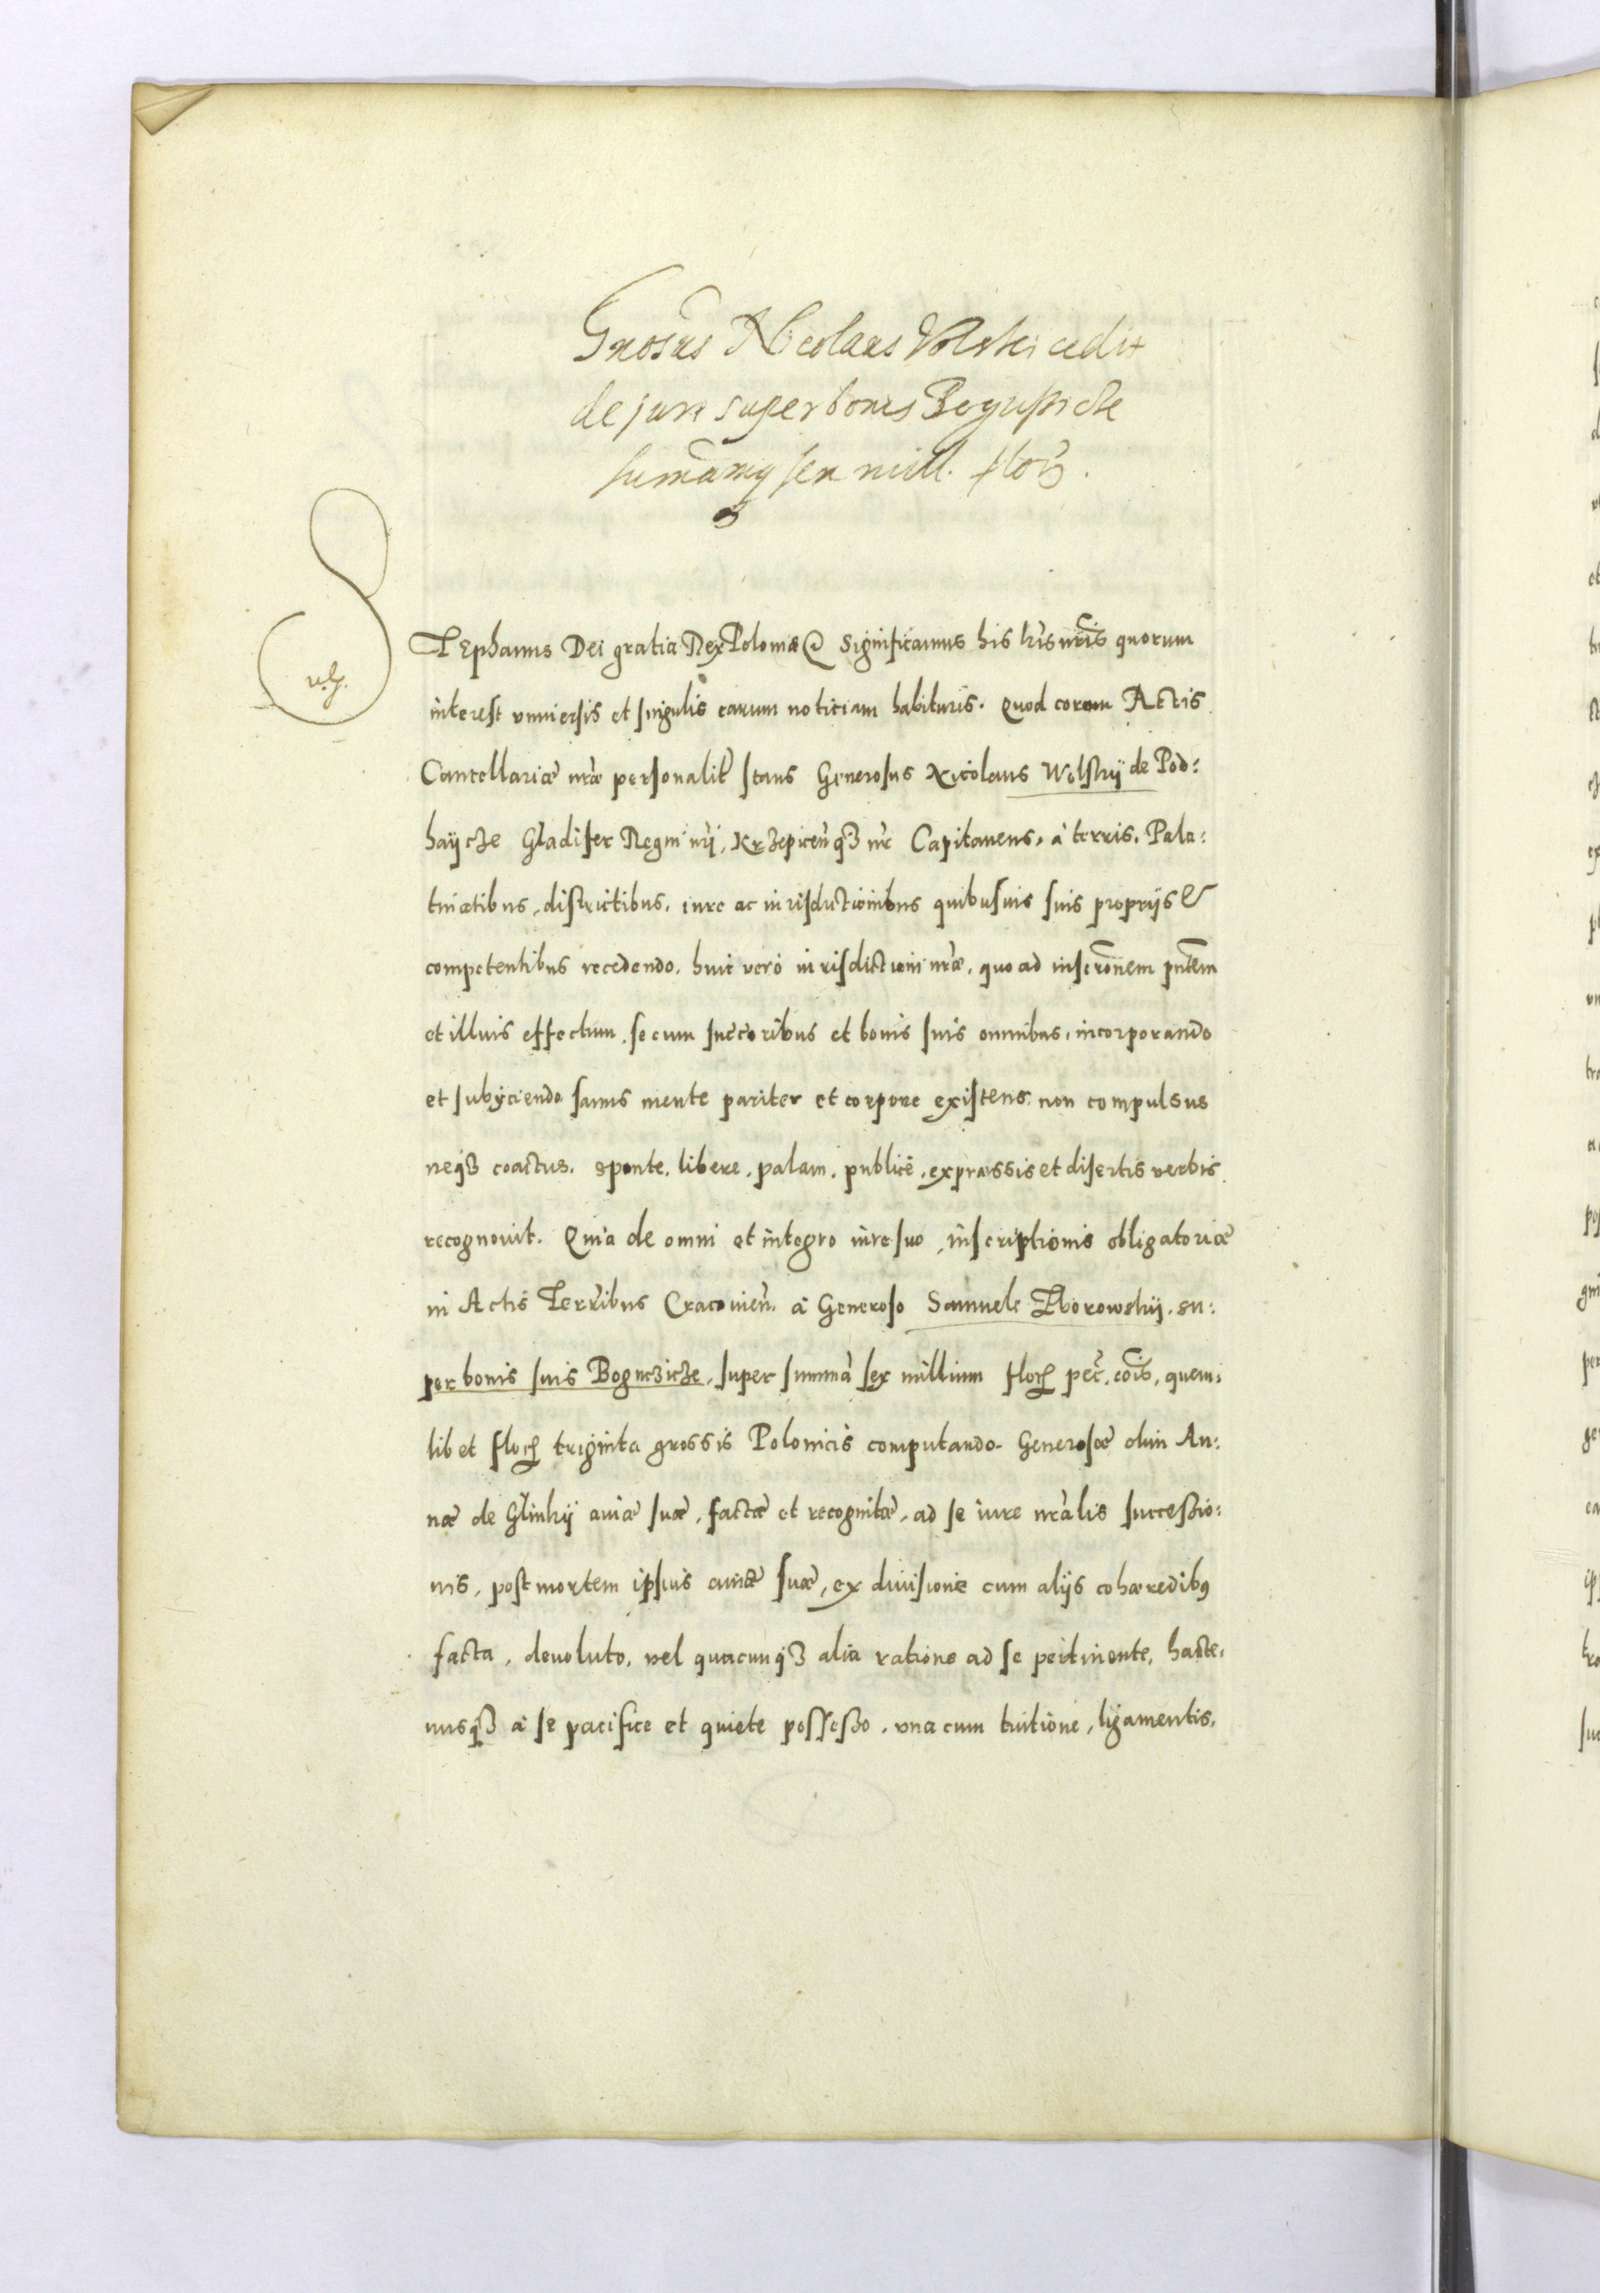 Gnosus Nicolaus Wolski cedit
de jure super bonis Boguszicze
summamq sex mill. flor.
STEphanus Dei gratia Rex Poloniæ & Significamus his lris nris quorum
interest vniuersis et singulis earum noticiam habituris. Quod coram Actis
Cancellariæ nræ personalitr stans Generosus Nicolaus Wolskij de Pod:
haijcze Gladifer Regni nri, Krzepicenqз nr Capitaneus, à terris, Pala:
tinatibus, districtibus, iure ac iurisductionibus quibusuis suis proprijs &
competentibus recedendo, huic verò iurisdictioni nræ, quo ad inscronem pntem
et illius effectum, se cum succoribus et bonis suis omnibus, incorporando
et subyciendo sanus mente pariter et corpore existens, non compulsus
neqз coactus, sponte, libere, palam, publicè, expræssis et disertis verbis
recognouit. Quia de omni et integro iure suo, inscriptionis obligatoriæ
in Actis Terribus Cracouien. à Generoso Samuele Zborowskij, su:
per bonis suis Boguczicze, super summã sex millium flor pec. cois, quem:
libet flor triginta grossis Polonicis computando. Generosæ olim An:
næ de Glinkij auiæ suæ, factæ et recognitæ, ad se iure nralis successio:
nis, post mortem ipsius auiæ suæ, ex diuisione cum alijs cohæredibꝰ
facta, deuoluto, vel quacunqз alia ratione ad se pertinente, hacte:
nusqз à se pacifice et quiete possesso, vna cum tuitione, ligamentis,